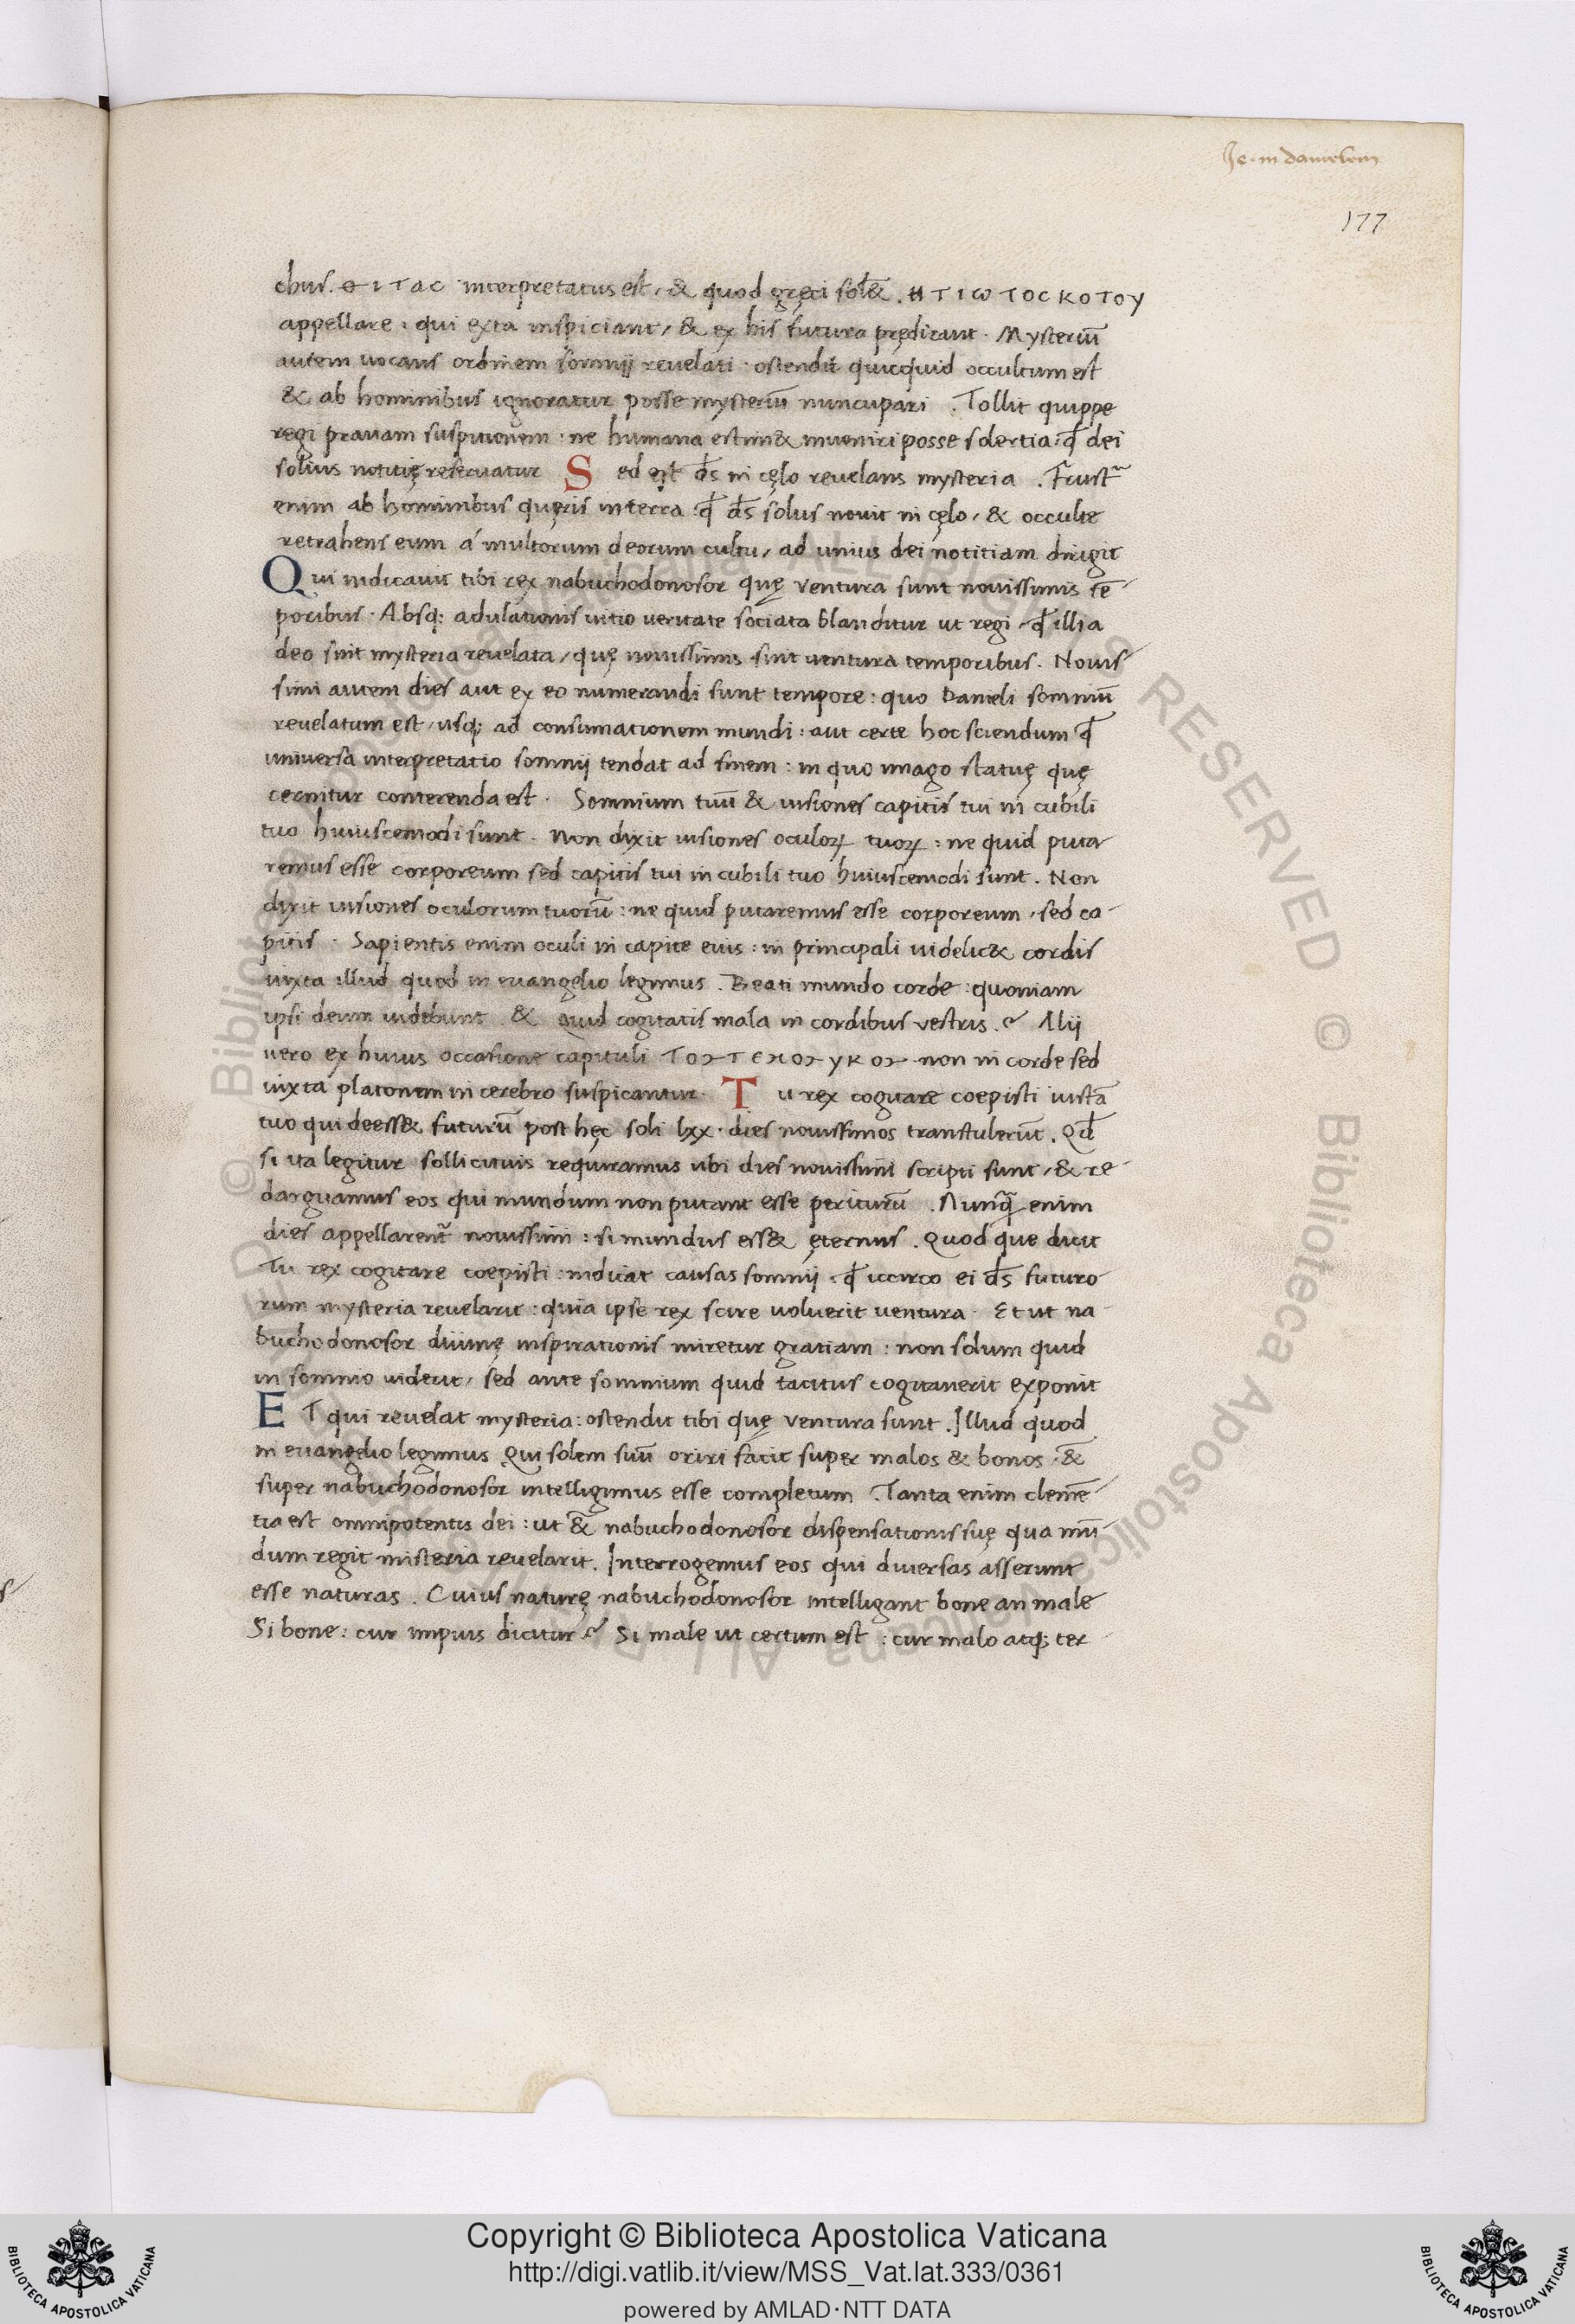 Je. in danielem
177
chus. ΘΙΤΑC interpretatus est, & quod gręci sol&̄ . ΗΤΙωΤΟCΚΟΤΟΥ
appellare : qui exta inspiciant, & ex his futura prędicant . Mysteriū
autem uocans ordinem somnij reuelati : ostendit quicquid occultum est
& ab hominibus ignoratur posse mysteriū nuncupari . Tollit quippe
regi prauam suspitionem : ne humana estim& inueniri posse solertia : qđ dei
solius notitię reseruatur Sed est đs in cęlo reuelans mysteria . Frustr̄
enim ab hominibus quęris in terra qđ đs solus nouit in cęlo, & occulte
retrahens eum á multorum deorum cultu, ad unius dei notitiam dirigit
Qui indicauit tibi rex nabuchodonosor quę ventura sunt nouissimis tē-
poribus . Absq; adulationis uitio ueritate sociata blanditur ut regi . qđ illi a
deo sint mysteria reuelata, quę nouissimis sint uentura temporibus . Nouis-
simi autem dies aut ex eo numerandi sunt tempore : quo Danieli somniū
reuelatum est, usq; ad consumationem mundi : aut certe hoc sciendum qđ
universa interpretatio somnij tendat ad finem : in quo imago statuę quę
cernitur conterenda est . Somnium tuū & uisiones capitis tui in cubili
tuo huiuscemodi sunt . Non dixit uisiones oculoꝝ tuoꝝ : ne quid puta-
remus esse corporeum sed capitis tui in cubili tuo huiuscemodi sunt . Non
dixit uisiones oculorum tuorū : ne quid putaremus esse corporeum, sed ca-
pitis . Sapientis enim oculi in capite eius : in principali uidelic& cordis
iuxta illud quod in euangelio legimus . Beati mundo corde : quoniam
ipsi deum uidebunt . & Quid cogitatis mala in cordibus vestris . ? Alij
uero ex huius occasione capituli non in corde sed
iuxta platonem in cerebro suspicantur . Tu rex cogitare coepisti iustā
tuo qui deess& futurū post hęc soli lxx . dies nouissimos transtulerūt . Qđ
si ita legitur sollicitius requiramus ubi dies nouissimi scripti sunt, & re-
darguamus eos qui mundum non putant esse periturū . Nunq̄ enim
dies appellarent̄ nouissimi : si mundus ess& ęternus . Quod que dicit
Tu rex cogitare coepisti : indicat causas somnij . qđ iccirco ei đs futuro-
rum mysteria reuelarit : quia ipse rex scire uoluerit uentura . Et ut na-
buchodonosor diuinę inspirationis miretur gratiam : non solum quid
in somnio uiderit, sed ante somnium quid tacitus cogitauerit exponit
ET qui reuelat mysteria : ostendit tibi quę ventura sunt . Illud quod
in euangelio legimus Qui solem suū oriri facit super malos & bonos . &̄
super nabuchodonosor intelligimus esse completum . Tanta enim clemē-
tia est omnipotentis dei : ut &̄ nabuchodonosor dispensationis suę qua mū-
dum regit misteria reuelarit . Interrogemus eos qui diuersas asserunt
esse naturas . Cuius naturę nabuchodonosor intelligant bone an male
Si bone : cur impius dicitur ? Si male ut certum est : cur malo atq; ter-
Copyright © Biblioteca Apostolica Vaticana
http://digi.vatlib.it/view/MSS_Vat.lat.333/0361
powered by AMLAD·NTT DATA
BIBLIOTECA APOSTOLICA VATICANA
BIBLIOTECA APOSTOLICA VATICANA